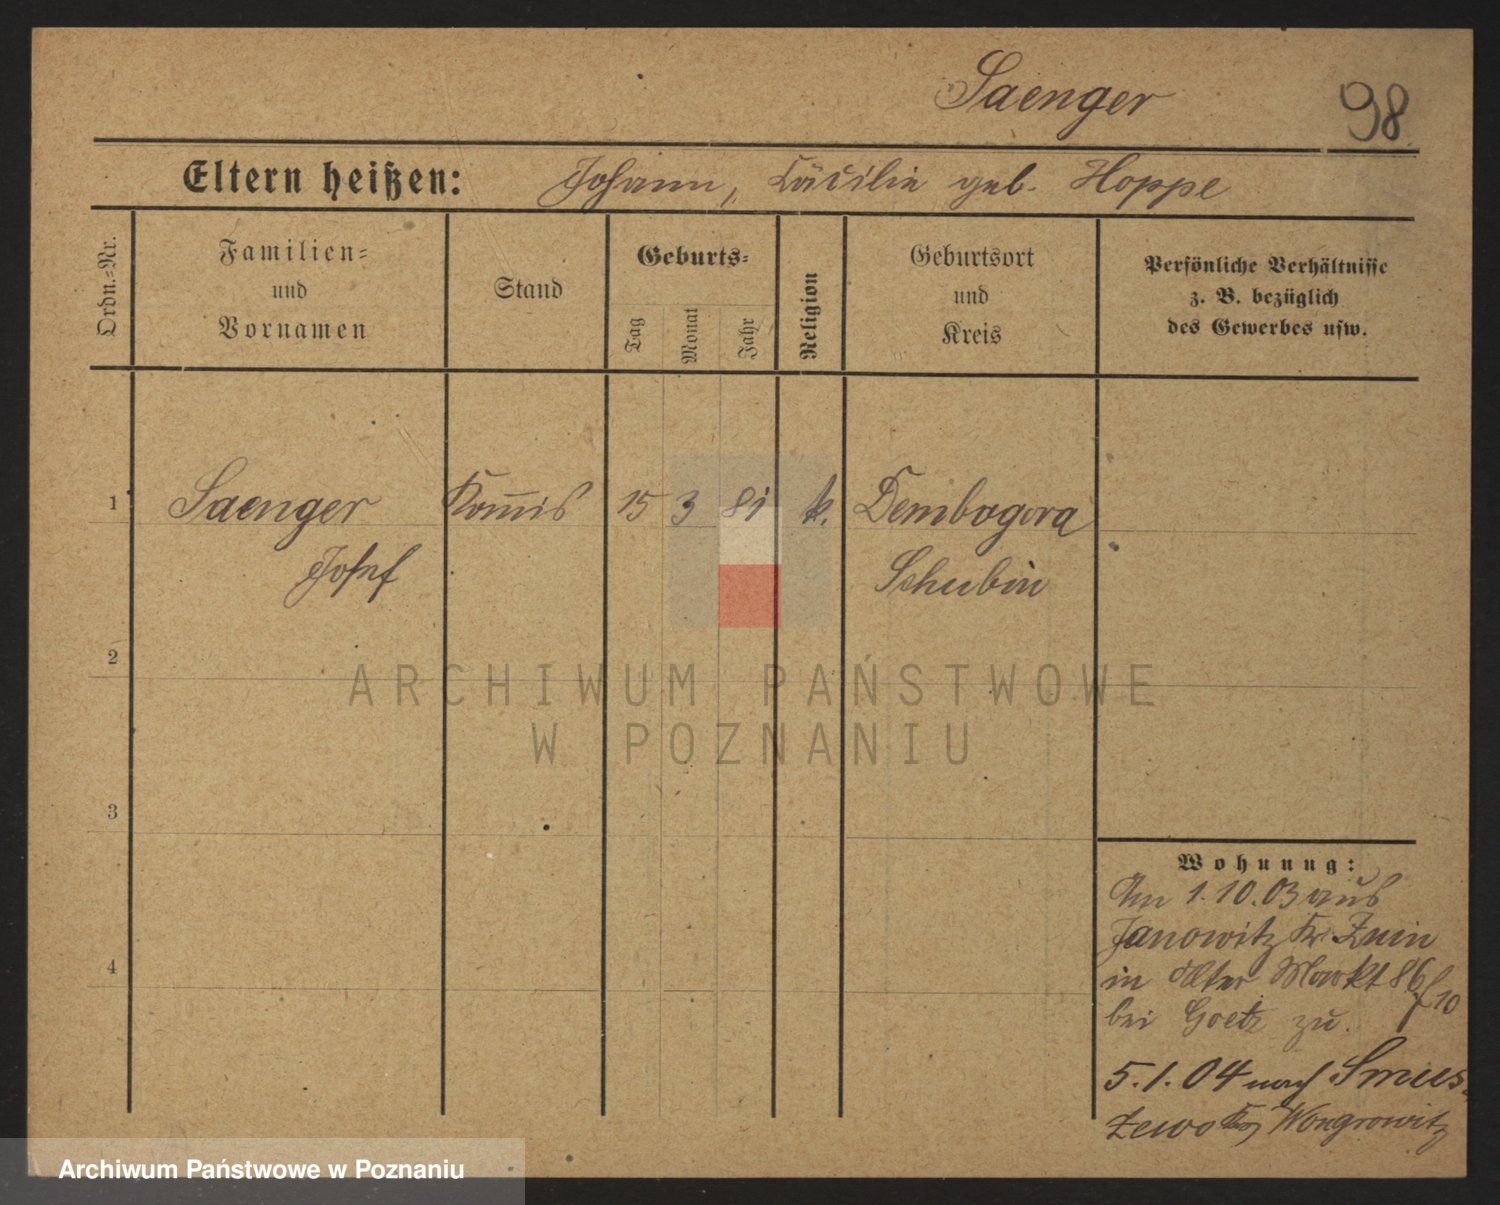 Saenger
98
Eltern heißen: Johann, Cäcilie geb. Hoppe
Ordn.-Nr.
Familien-
und
Vornamen
Stand
Geburts-
Tag
Monat
Jahr
Religion
Geburtsort
und
Kreis
Persönliche Verhältnisse
z. B. bezüglich
des Gewerbes usw.
1 Saenger Kom̅is 15 3 81 k. Dembogora
Josef Schubin
2
ARCHIWUM PAŃSTWOWE
W POZNANIU
3
4
Wohnung:
Am 1.10.03 aus
Janowitz Kr. Znin
in Alter Markt 86
bei Goetz zu.
5.1.04 nach Smus-
zewo Wongrowitz
Archiwum Państwowe w Poznaniu